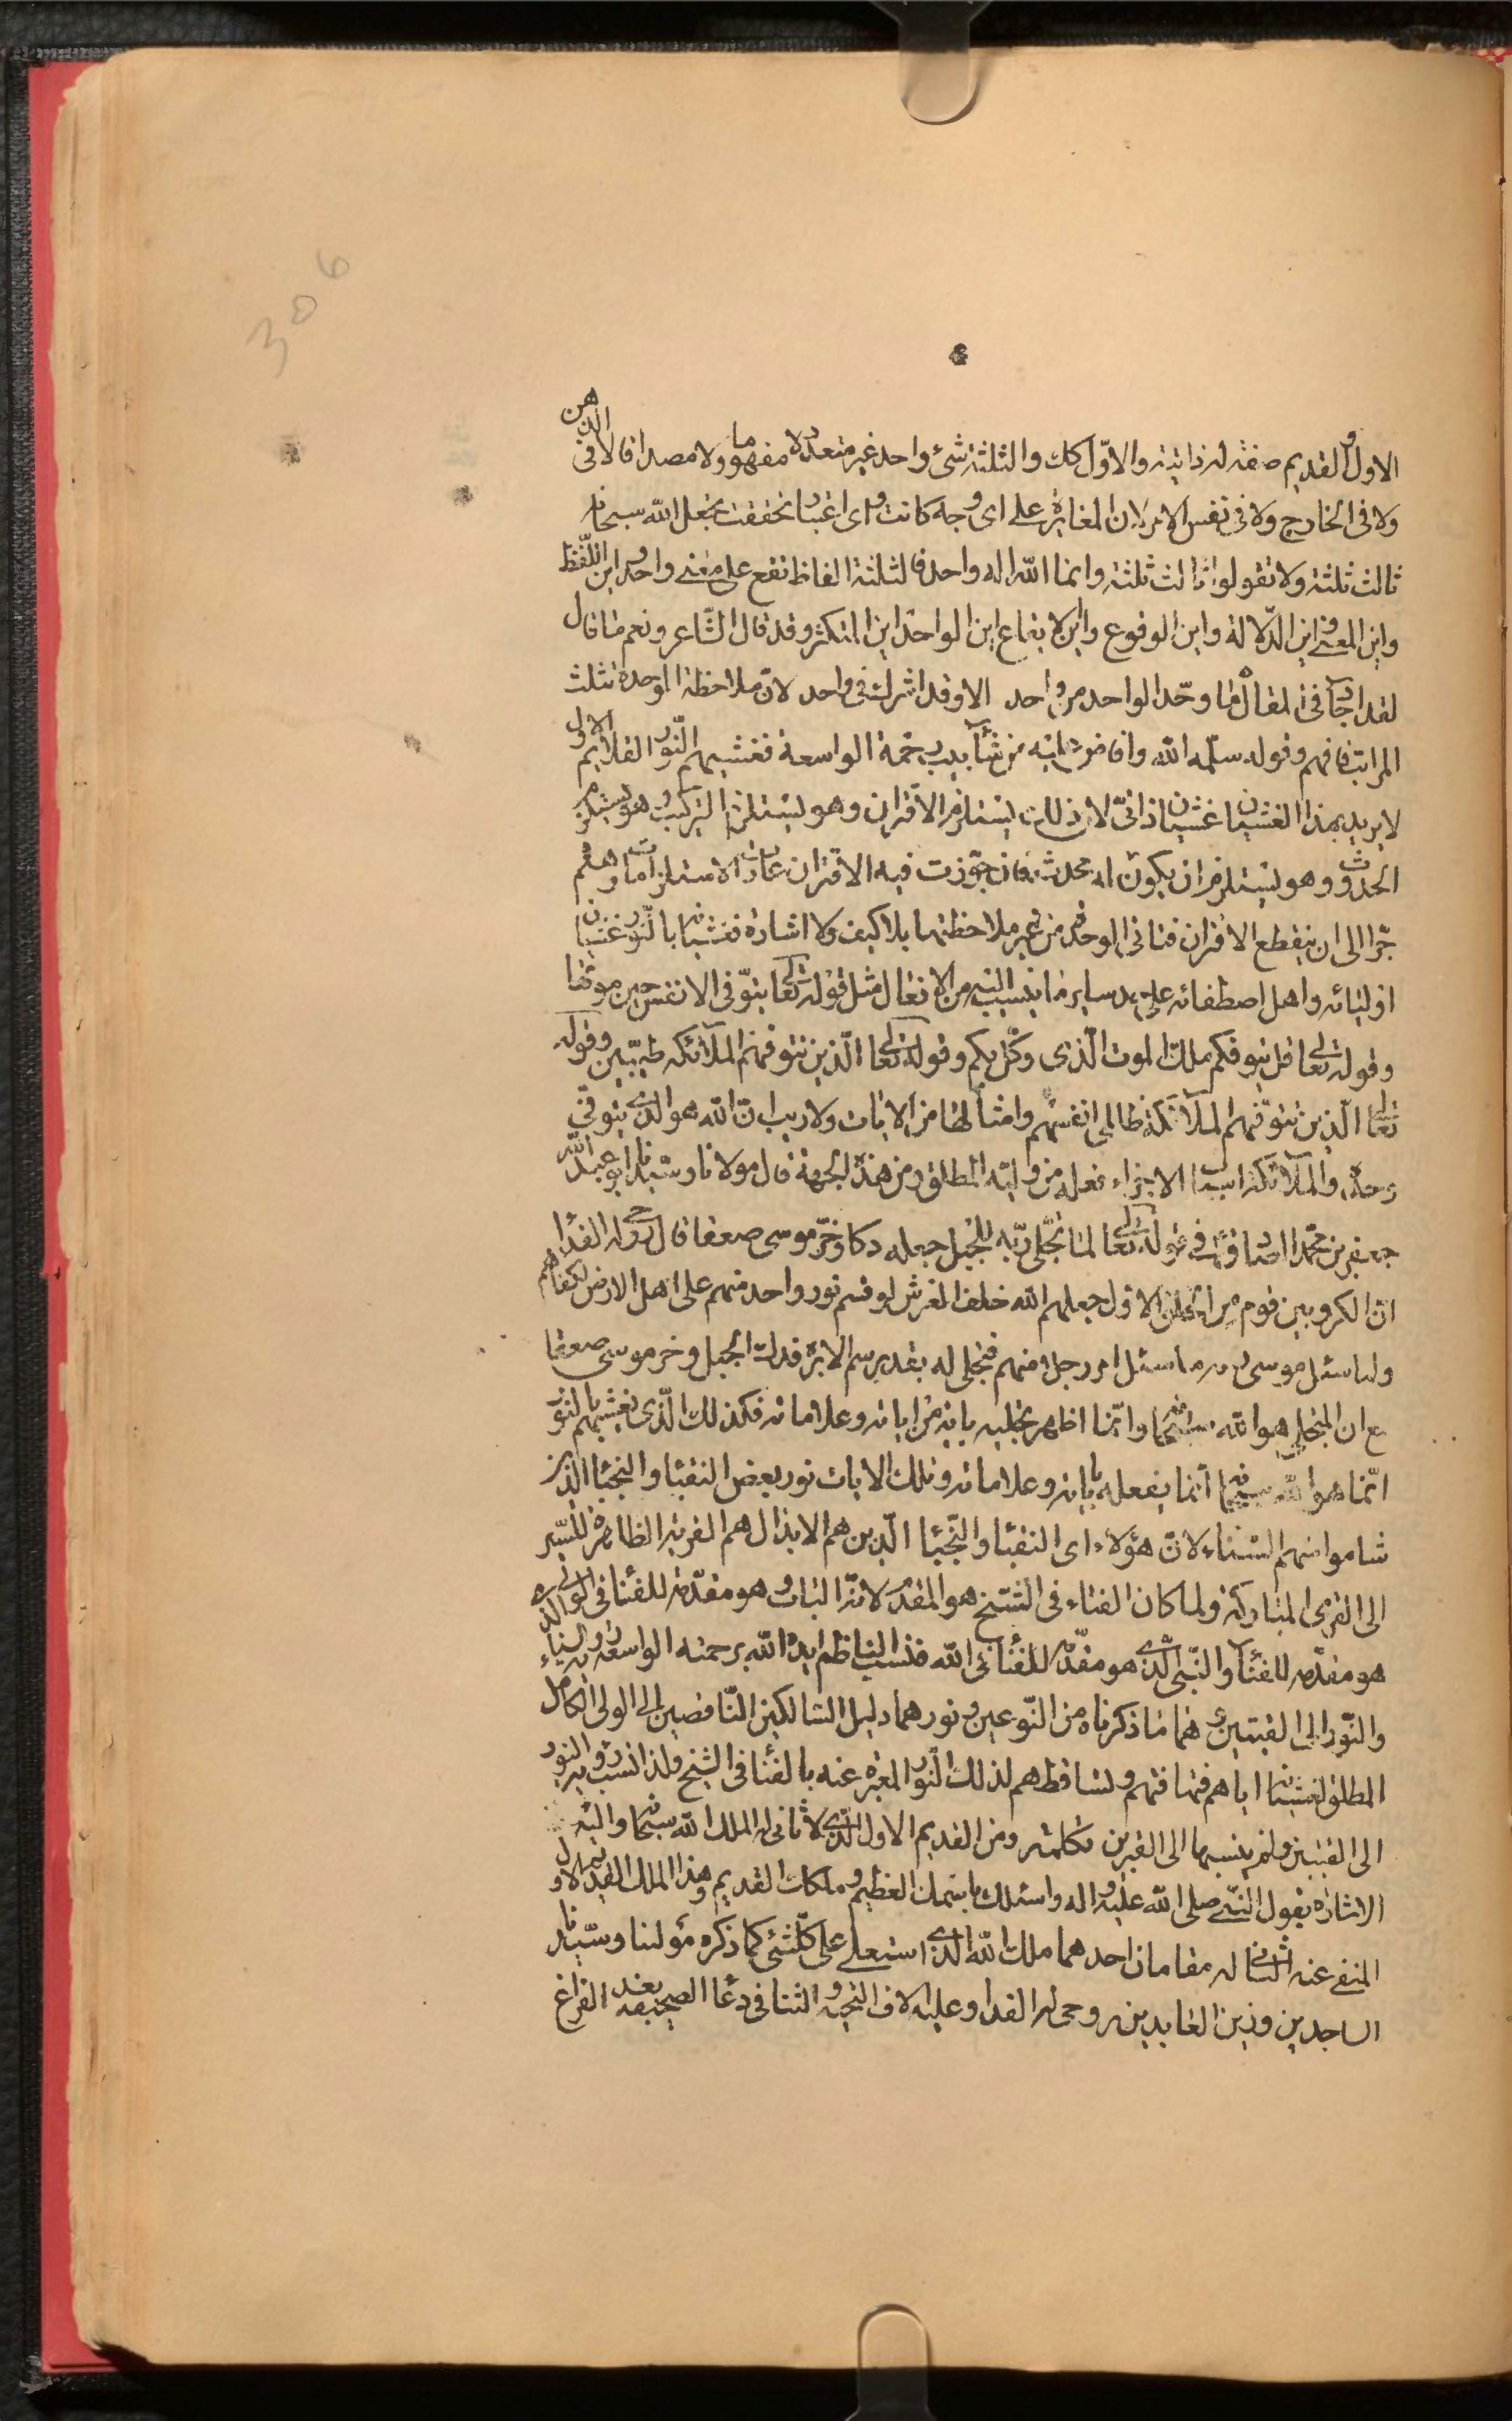 306
الاول والقديم صفة له ذاتية والاوّل كك والثلثة شئ واحد غير متعددة مفهوما ولا مصداقا لا فى الذهن
ولا فى الخارج ولا فى نفس الامر لان المغايرة على اى وجه كانت واى اعتبار تحققت بجعل الله سبحانه
ثالث ثلثة ولا تقولوا ثالث ثلثة وانما الله اله واحد فالثلثة الفاظ تقع على معنى واحد واين اللّفظ
واين المعنى واين الدّلالة واين الوقوع واين الايقاع اين الواحد اين المتكثر وقد قال الشّاعر ونعم ما قال
لقد اجاد فى المقال ما وحّد الواحد من واحد الا وقد اشرك فى واحد لانّ ملاحظة الوحدة تثلث
المراتب فافهم وقوله سلّمه الله وافاض عليه من شآبيب رحمة الواسعة فغشيهم النّور القديم الاول
لا يريد بهذا الغشيان غشيان ذاتىّ لان ذلك يستلزم الاقتران وهو يستلزم التركيب وهو يستلزم
الحدوث وهو يستلزم ان يكون اله محدث فان جوّزت فيه الاقتران عادت الاستلزامات وهلم
جّرا الى ان ينقطع الاقتران فنائى الوحدة من غير ملاحظتها بلا كيف ولا اشارة فغشيانه بالنّور غشيان
اوليائه واهل اصطفائه على حد ساير ما ينسب اليه من الافعال مثل قوله تعالى يتوّفى الانفس حين موتها
وقوله تعالى قل يتوفكم ملك الموت الّذى وكّل بكم وقوله تعالى الّذين تتوفهم الملآئكه طيّبين وقوله
تعالى الّذين تتوّفهم الملآئكة ظالمى انفسهم وامثالها من الايات ولا ريب انّ الله هو الذى يتوفّى
وحده والملآئكة اسباب الاجزاء فعله من وليّه المطلق ومن هذه الجهة قال مولانا وسيّدنا ابو عبد الله
جعفر بن محمّد الصّادق ع فى قوله تعالى لما تجّلى ربّه للجبل جعله دكا وخّر موسى صعقا قال روحى له الفدا
انّ الكروبين قوم من الخلق الاول جعلهم الله خلف العرش لو قسم نور واحد منهم على اهل الارض لكفاهم
ولما سئل موسى ربه ما سئل امر رجلا منهم فتجلى له بقدر سم الابرة فدك الجبل وخر موسى صعقا
مع ان المتجلى هو الله سبحانه وانّما اظهر تجليه باية من اياته وعلاماته فكذلك الّذى يغشيهم بالنور
انّما هو الله سبحانه انما يفعله باياته وعلاماته وتلك الايات نور بعض النقبا والنجبا الّذين
شاموا منهم السّناء لانّ هؤلاء اى النقبا والنّجبا الّذين هم الابدال هم القرية الظاهرة للسّير
الى القرى المباركة ولما كان الفناء فى الشّيخ هو المقدّم لانّه الباب وهو مقدّمة للفنا فى الولى الذى
هو مقدّمة للفنا والنّبى الّذى هو مقدّمة للفنا فى الله فنسب الناظم ايده الله برحمته الواسعة والسناء
والنّور الى الفتيين وهما ما ذكرناه من النّوعين ونورهما دليل السّالكين النّاقصين الى الولى الكامل
المطلق لغشيانه اياهم فتهافتهم وتساقطهم لذلك النّور المعبّر عنه بالفنا فى الشيخ ولذا نسب والنور
الى الفتيين ولم ينسبها الى الغيرين فكلمته ومن القديم الاول الّذى لا ثانى له الملك الله سبحانه واليه
الاشارة بقول النّبى صلى الله عليه واله واسئلك باسمك العظيم وملكك القديم وهذا الملك القديم الاول
المنفى عنه الثّانى له مقامان احدهما ملك الله الّذى استعلى على كلّشئ كما ذكره مولنا وسيّدنا
الساجدين وزين العابدين روحى له الفداء وعليه الاف التحيّه والثنا فى دعا الصحيفه بعد الفراغ